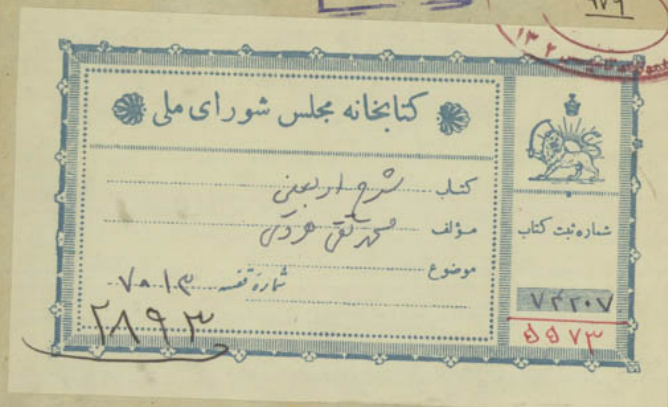 ۹۷۹
کتابخانه مجلس شورای ملی
کتاب شرح اربعین
مؤلف محمد تقی هروی
موضوع
شماره قفسه ۷۸۱۳
۲۸۹۳
شماره ثبت کتاب
۷۲۲۰۷
۵۵۷۳